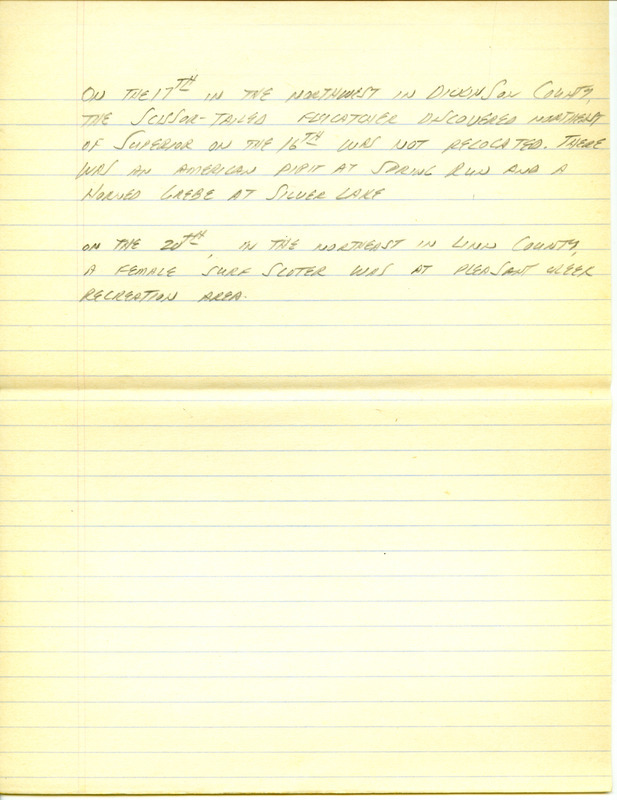 ON THE 17TH IN THE NORTHWEST IN DICKINSON COUNTY,
THE SCISSOR-TAILED FLYCATCHER DISCOVERED NORTHWEST
OF SUPERIOR ON THE 16TH WAS NOT RELOCATED. THERE
WAS AN AMERICAN PIPIT AT SPRING RUN AND A
HORNED GREBE AT SILVER LAKE
ON THE 20TH, IN THE NORTHEAST IN LINN COUNTY,
A FEMALE SURF SCOTER WAS AT PLEASANT CREEK
RECREATION AREA.